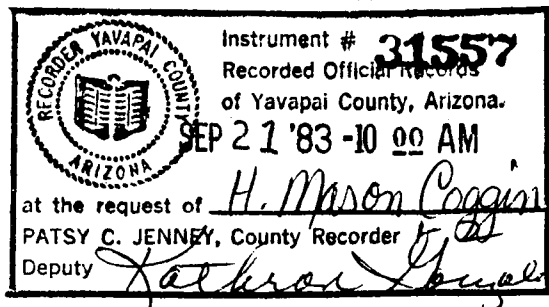 RECORDER YAVAPAI COUNTY
ARIZONA
Instrument # 31557
Recorded Official Records
of Yavapai County, Arizona.
SEP 21 '83 -10 00 AM
at the request of H. Mason Coggin
PATSY C. JENNEY, County Recorder
Deputy Kathron